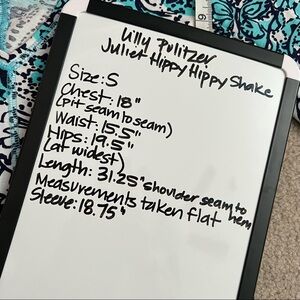 Lilly Pulitzer
Juliet Hippy Hippy Shake
Size: S
Chest: 18"
(pit seam to seam)
Waist: 15.5"
Hips: 19.5"
(at widest)
Length: 31.25" shoulder seam to hem
Measurements taken flat
Sleeve: 18.75"